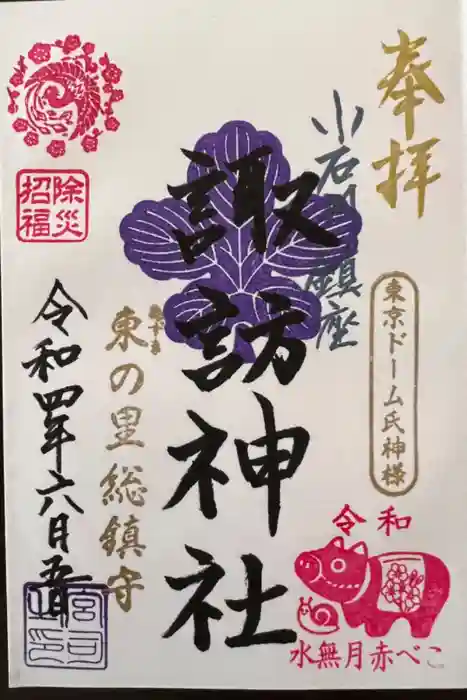 奉拝
小石川鎮座
諏訪神社
東京ドーム氏神様
東の里総鎮守
除災
招福
令和四年六月
宮司
之印
令和
水無月赤べこ